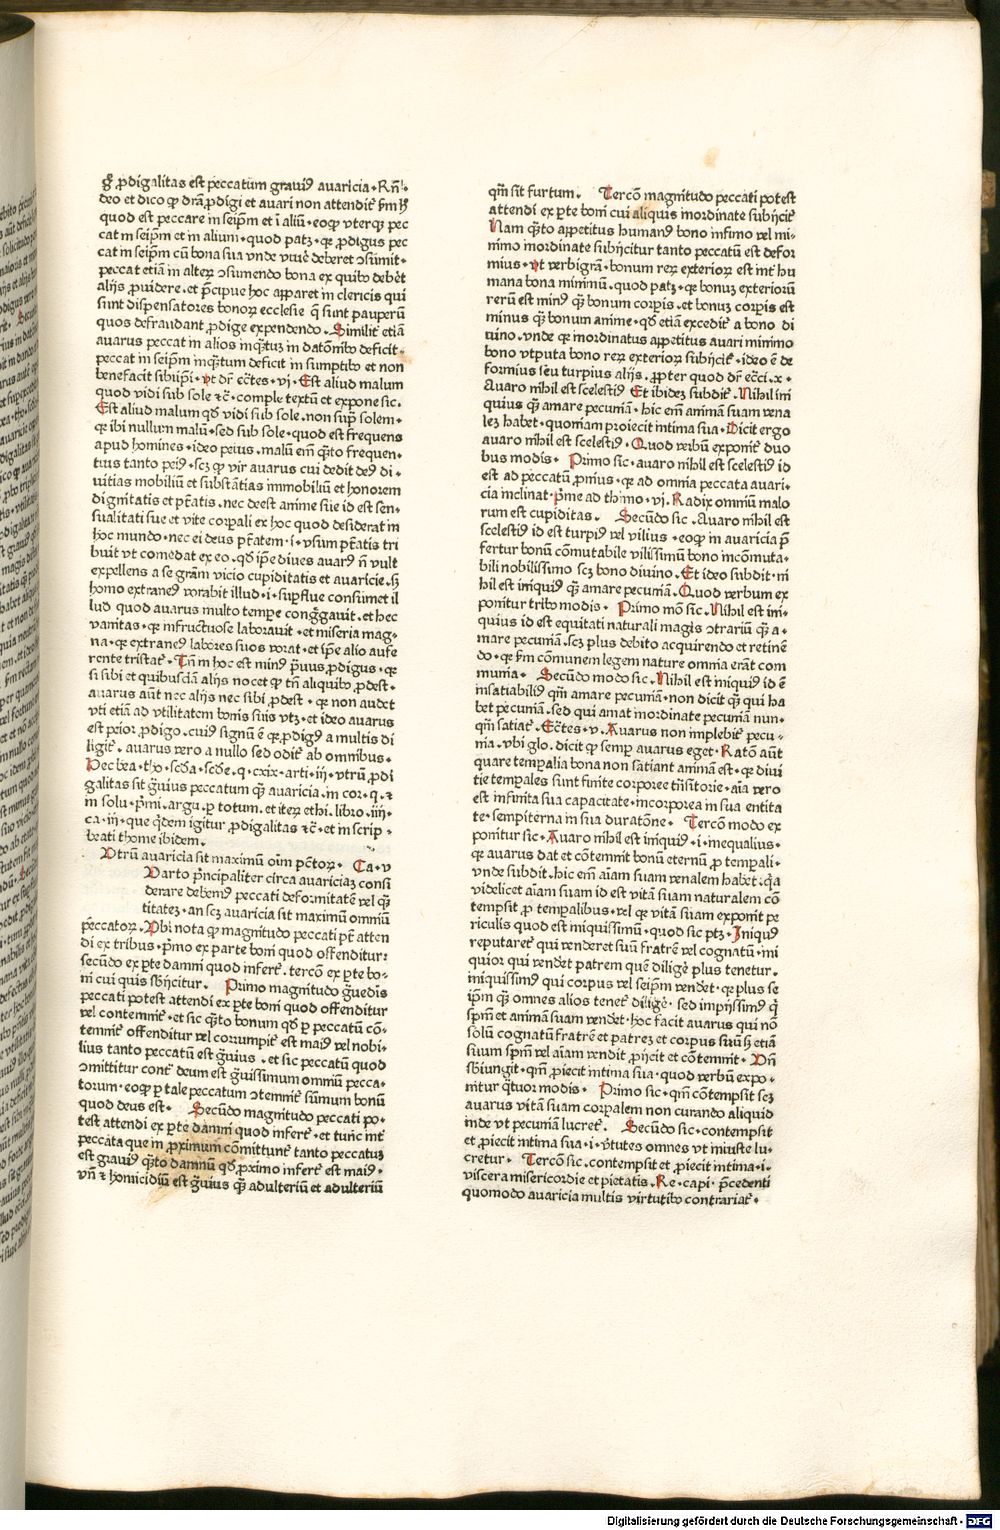 g̊ ꝓdigalitas est peccatum grauiꝰ auaricia · Rn̄ ·
deo et dico ꝙ dr̄a ꝓdigi et auari non attendit᷑ ẜm ħ
quod est peccare in seip̄m et ī aliū · eoꝙ vterqꝫ pec
cat in seip̄m et in alium · quod patꝫ · qꝛ ꝓdigus pec
cat in seip̄m cū bona sua vnde viue᷑ deberet ↄsumit ·
peccat etiā in alteꝝ ↄsumendo bona ex quibꝰ debēt
alijs ꝓuidere · et p̄cipue hoc apparet in clericis qui
sunt dispensatores bonoꝝ ecclesie q̄ sunt pauperū
quos defraudant ꝓdige expendendo · Similit᷑ etiā
auarus peccat in alios inq̄tuꝫ in datōnibꝰ deficit ·
peccat in seip̄m inq̄tum deficit in sumptibꝰ et non
benefacit sibiip̄i · vt dr̄ ecc̄tes · vi · Est aliud malum
quod vidi sub sole ⁊c̄ · comple textū et expone sic ·
Est aliud malum qd̄ vidi sub sole · non sup̄ solem ·
qꝛ ibi nullum malū · sed sub sole · quod est frequens
apud homines · ideo peius · malū em̄ q̄to frequen ·
tius tanto peiꝰ · scꝫ ꝙ vir auarus cui dedit deꝰ di ·
uitias mobiliū et substātias immobiliū et honorem
dignitatis et p̄tatis · nec deest anime sue id est sen ·
sualitati sue et vite corpali ex hoc quod desiderat in
hoc mundo · nec ei deus p̄tatem · i · vsum p̄tatis tri
buit vt comedat ex eo · qd̄ ip̄e diues auarꝰ n̄ vult
expellens a se gram̄ vicio cupiditatis et auaricie · sꝫ
homo extraneꝰ vorabit illud · i · supflue consumet il
lud quod auarus multo tempe cong̃gauit · et hec
vanitas · qꝛ infructuose laborauit · et miseria mag ·
na · qꝛ extraneꝰ labores suos vorat · et ip̄e alio aufe
rente tristat᷑ · Tn̄ in hoc est minꝰ p̄uus ꝓdigus · qꝛ
si sibi et quibusdā alijs nocet ꝙ tn̄ aliquibꝰ ꝓdest ·
auarus aūt nec alijs nec sibi ꝓdest · qꝛ non audet
vti etiā ad vtilitatem bonis suis vtꝫ · et ideo auarus
est peior ꝓdigo · cuiꝰ signū ē qꝛ ꝓdigꝰ a multis di
ligit᷑ · auarus vero a nullo sed odit᷑ ab omnibus ·
Hec bea · tho · scd̄a · scd̄e · q · cxix · arti · iij · vtrū ꝓdi
galitas sit g̃uius peccatum q̄ꝫ auaricia · in cor · q · ⁊
in solu · p̄mi · argu · ꝑ totum · et iteꝝ ethi · libro · iiij ·
ca · iij · que q̄dem igitur ꝓdigalitas ⁊c̄ · et in scrip ·
beati thome ibidem ·
Vtrū auaricia sit maximū oīm pc̄toꝝ · Ca · v
Quarto p̄ncipaliter circa auariciaꝫ consi
derare debemꝰ peccati deformitatē vel q̄ꝫ
titateꝫ · an scꝫ auaricia sit maximū omniū
peccatoꝝ · Vbi nota ꝙ magnitudo peccati pt̄ atten
di ex tribus · p̄mo ex parte boni quod offenditur:
secūdo ex p̄te damni quod infert᷑ · tercō ex p̄te bo ·
ni cui quis sbijcitur · Primo magnitudo g̃uedīs
peccati potest attendi ex p̄te boni quod offenditur
vel contemnit᷑ · et sic q̄to bonum qd̄ ꝑ peccatū cō ·
temnit᷑ offenditur vel corrumpit᷑ est maiꝰ vel nobi ·
lius tanto peccatū est g̃uius · et sic peccatū quod
ↄmittitur cont᷑ deum est g̃uissimum omniū pecca ·
torum · eoꝙ ꝑ tale peccatum ↄtemnit᷑ sūmum bonū
quod deus est · Secūdo magnitudo peccati po ·
test attendi ex p̄te damni quod infert᷑ · et tunc int᷑
peccata que in ꝓximum cōmittunt᷑ tanto peccatuꝫ
est grauiꝰ q̄to damnū qd̄ ꝓximo infert᷑ est maiꝰ ·
vn̄ ⁊ homicidiū est g̃uius q̄ꝫ adulteriū et adulteriū
qm̄ sit furtum · Tercō magnitudo peccati potest
attendi ex p̄te boni cui aliquis inordinate subijcit᷑
Nam q̄to appetitus humanꝰ bono infimo vel mi ·
nimo inordinate subijcitur tanto peccatū est defor
mius · vt verbigrā · bonum reꝝ exterioꝝ est int᷑ hu
mana bona minimū · quod patꝫ · qꝛ bonuꝫ exterioriū
rerū est minꝰ q̄ꝫ bonum corpis · et bonuꝫ corpis est
minus q̄ꝫ bonum anime · qd̄ etiā excedit᷑ a bono di
uino · vnde qꝛ inordinatus appetitus auari minimo
bono vtputa bono reꝝ exterioꝝ subijcit᷑ · ideo ē de
formius seu turpius alijs · ꝓpter quod dr̄ ecc̄i · x ·
Auaro nihil est scelestiꝰ Et ibideꝫ subdit᷑ · Nihil ini
quius q̄ꝫ amare pecuniā · hic em̄ animā suam vena
leꝫ habet · quoniam proiecit intima sua · Dicit ergo
auaro nihil est scelestiꝰ · Quod verbū exponit᷑ duo
bus modis · Primo sic · auaro nihil est scelestiꝰ id
est ad peccatū ꝓnius · qꝛ ad omnia peccata auari ·
cia inclinat · p̄me ad thimo · vi · Radix omniū malo
rum est cupiditas · Secūdo sic · Auaro nihil est
scelestiꝰ id est turpiꝰ vel vilius · eoꝙ in auaricia p̄
fertur bonū cōmutabile vilissimū bono incōmuta ·
bili nobilissimo scꝫ bono diuino · Et ideo subdit · ni
hil est iniquiꝰ q̄ꝫ amare pecuniā · Quod verbum ex
ponitur tribꝰ modis · Primo mō sic · Nihil est ini ·
quius id est equitati naturali magis ↄtrariū q̄ꝫ a ·
mare pecuniā · scꝫ plus debito acquirendo et retinē
do · qꝛ ẜm cōmunem legem nature omnia erāt com
munia · Secūdo modo sic · Nihil est iniquiꝰ id ē
insatiabiliꝰ qm̄ amare pecuniā · non dicit q̄ꝫ qui ha
bet pecuniā · sed qui amat inordinate pecuniā nun ·
qm̄ satiat᷑ · Ecc̄tes · v · Auarus non implebit᷑ pecu ·
nia · vbi glo · dicit ꝙ semꝑ auarus eget · Ratō aūt
quare tempalia bona non satiant animā est · qꝛ diui
tie tempales sunt finite corporee trāsitorie · aīa vero
est infinita sua capacitate · incorporea in sua entita
te · sempiterna in sua duratōne · Tercō modo ex
ponitur sic · Auaro nihil est iniquiꝰ · i · inequalius ·
qꝛ auarus dat et cōtemnit bonū eternū ꝓ tempali ·
vnde subdit · hic em̄ aīam suam venalem habet: q̄a
videlicet aīam suam id est vitā suam naturalem cō
tempsit ꝓ tempalibus · vel qꝛ vitā suam exponit pe
riculis quod est iniquissimū · quod sic ptꝫ · Iniquꝰ
reputaret᷑ qui venderet suū fratrē vel cognatū · ini
quior qui vendet patrem quē dilige᷑ plus tenetur ·
iniquissimꝰ qui corpus vel seip̄m vendet · qꝛ plus se
ip̄m q̄ꝫ omnes alios tenet᷑ dilige᷑ · sed impijssimꝰ q̄
sp̄m et animā suam vendet · hoc facit auarus qui nō
solū cognatū fratrē et patreꝫ et corpus suū sꝫ etiā
suum sp̄m vel aīam vendit ꝓijcit et cōtemnit · Vn̄
sbiungit · qm̄ ꝓiecit intima sua · quod verbū expo ·
nitur q̄tuor modis · Primo sic · qm̄ cōtempsit scꝫ
auarus vitā suam corpalem non curando aliquid
inde vt pecuniā lucret᷑ · Secūdo sic · contempsit
et ꝓiecit intima sua · i · v᷑tutes omnes vt iniuste lu ·
cretur · Tercō sic · contempsit et ꝓiecit intima · i ·
viscera misericordie et pietatis · Re · capi · p̄cedenti
quomodo auaricia multis virtutibꝰ contrariat᷑ ·
Digitalisierung gefördert durch die Deutsche Forschungsgemeinschaft - DFG